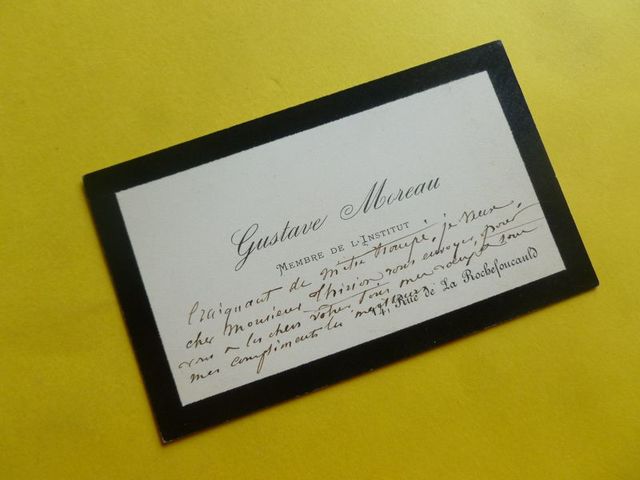 Gustave Moreau
MEMBRE DE L'INSTITUT
Craignant de m'être trompé, je veux,
cher Monsieur Thirion vous envoyer, pour
vous & les chers vôtres tous mes
mes compliments les meilleurs
14, Rue de La Rochefoucauld